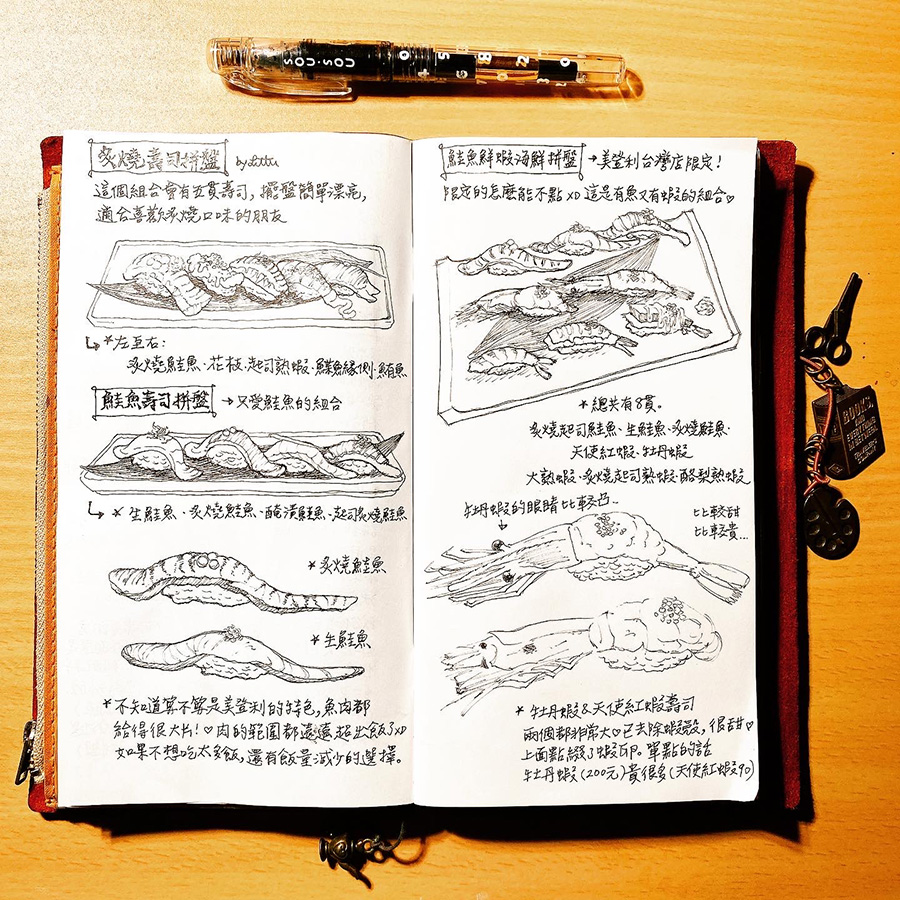 SOU·SOU
炙燒壽司拼盤
這個組合會有五貫壽司,擺盤簡單漂亮,
適合喜歡炙燒口味的朋友
*左至右:
炙燒鮭魚、花枝、起司熟蝦、鰈魚緣側、鮪魚
鮭魚壽司拼盤 → 又愛鮭魚的組合
* 生鮭魚、炙燒鮭魚、醃漬鮭魚、起司炙燒鮭魚
*炙燒鮭魚
*生鮭魚
*不知道算不算是美登利的特色,魚肉都
給得很大片!♡肉的範圍都遠遠超出飯了XD
如果不想吃太多飯,還有飯量減少的選擇。
鮭魚鮮蝦海鮮拼盤 → 美登利台灣店限定!
限定的怎麼能不點XD 這是有魚又有蝦的組合♡
*總共有8貫。
炙燒起司鮭魚、生鮭魚、炙燒鮭魚、
天使紅蝦、牡丹蝦
大熟蝦、炙燒起司熟蝦、酪梨熟蝦
牡丹蝦的眼睛比較凸…
比較甜
比較貴…
* 牡丹蝦&天使紅蝦壽司
兩個都非常大♡已去除蝦殼,很甜♡
上面點綴了蝦卵。單點的話
牡丹蝦(200元)貴很多(天使紅蝦90)